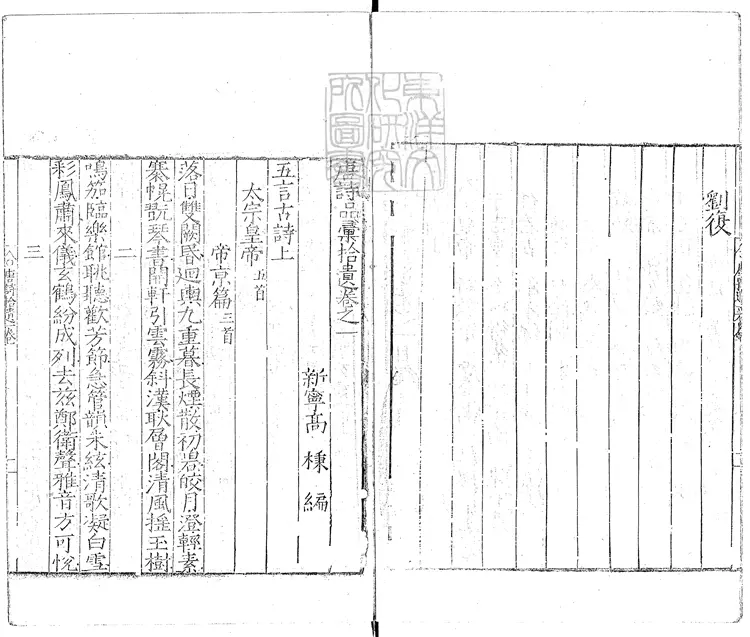 劉復
唐詩品彙拾遺卷之一
新寧高棅編
五言古詩上
太宗皇帝 五首
帝京篇 三首
落日雙闕昏迴輿九重暮長煙散初碧皎月澄輕素
褰幌翫琴書開軒引雲霧斜漢耿層閣清風搖玉樹
二
鳴笳臨樂館眺聽歡芳節急管韻朱絃清歌凝白雪
彩鳳肅來儀玄鶴紛成列去茲鄭衛聲雅音方可悅
三
東洋文化研究所圖書